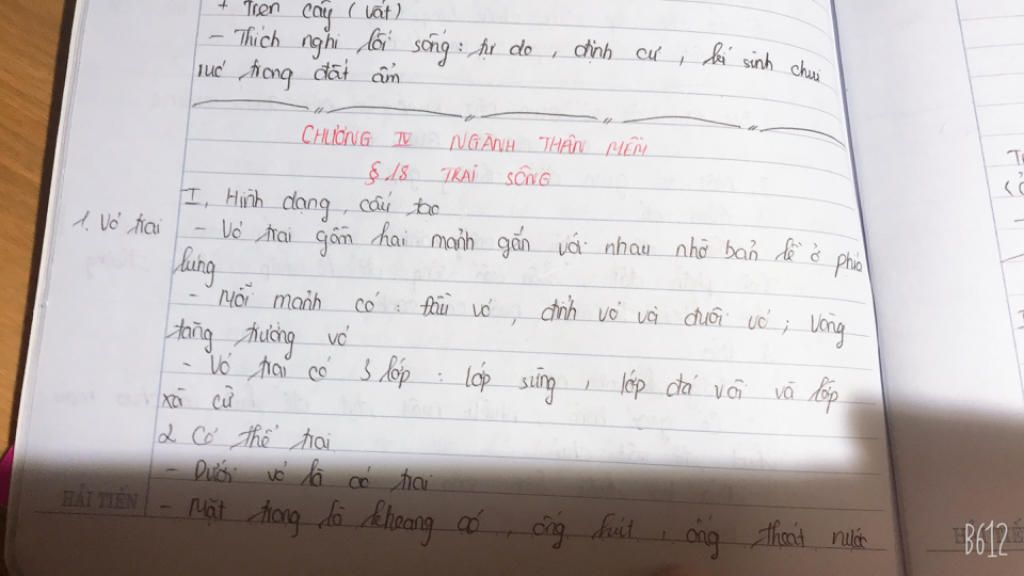 + Trên cây (vắt)
- Thích nghi lối sống: tự do, định cư, kí sinh chui
rúc trong đất ẩm
CHƯƠNG IV NGÀNH THÂN MỀM
§ 18 TRAI SÔNG
I, Hình dạng, cấu tạo
1. Vỏ trai
- Vỏ trai gồm hai mảnh gắn với nhau nhờ bản lề ở phía
lưng
- Mỗi mảnh có: đầu vỏ, đỉnh vỏ và đuôi vỏ; vòng
tăng trưởng vỏ
- Vỏ trai có 3 lớp: lớp sừng, lớp đá vôi và lớp
xà cừ
2 Cơ thể trai
- Dưới vỏ là áo trai
- Mặt trong là khoang áo, ống hút, ống thoát nước
HẢI TIẾN
B612